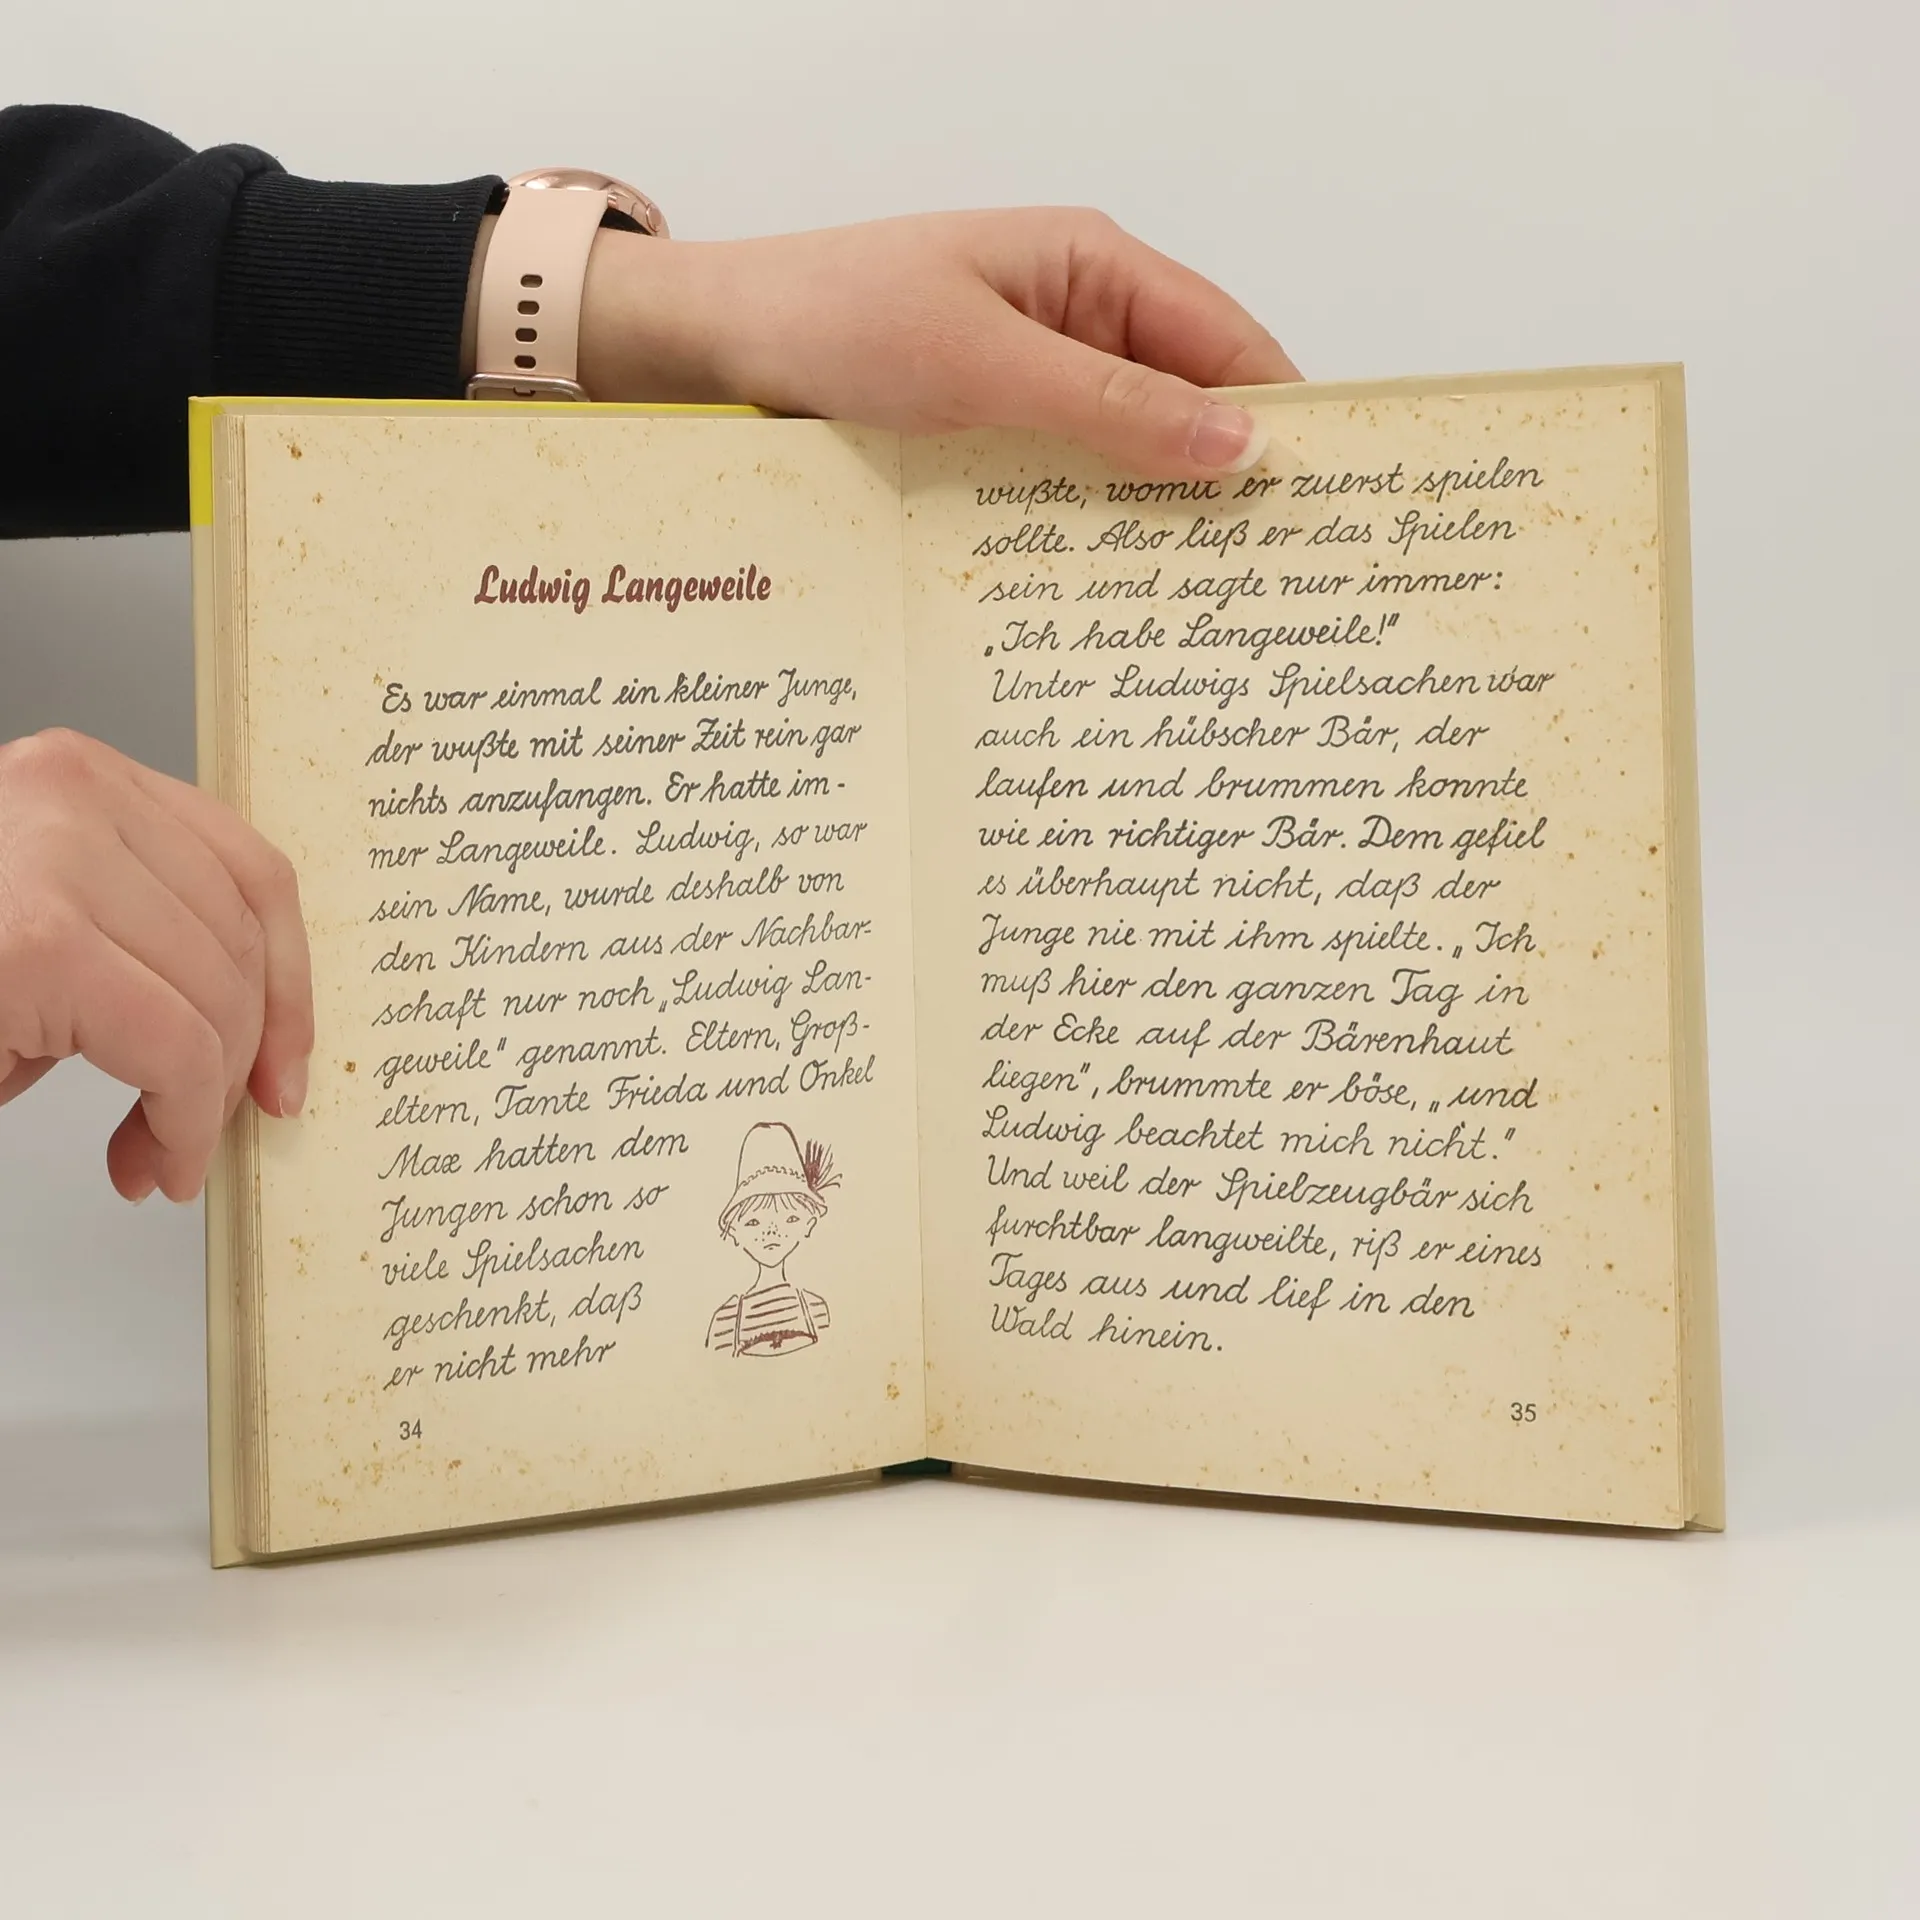 Ludwig Langeweile
Es war einmal ein kleiner Junge,
der wußte mit seiner Zeit rein gar
nichts anzufangen. Er hatte im-
mer Langeweile. Ludwig, so war
sein Name, wurde deshalb von
den Kindern aus der Nachbar-
schaft nur noch „Ludwig Lan-
geweile" genannt. Eltern, Groß-
eltern, Tante Frieda und Onkel
Max hatten dem
Jungen schon so
viele Spielsachen
geschenkt, daß
er nicht mehr
34
wußte, womit er zuerst spielen
sollte. Also ließ er das Spielen
sein und sagte nur immer:
„Ich habe Langeweile!"
Unter Ludwigs Spielsachen war
auch ein hübscher Bär, der
laufen und brummen konnte
wie ein richtiger Bär. Dem gefiel
es überhaupt nicht, daß der
Junge nie mit ihm spielte. „Ich
muß hier den ganzen Tag in
der Ecke auf der Bärenhaut
liegen", brummte er böse, „und
Ludwig beachtet mich nicht."
Und weil der Spielzeugbär sich
furchtbar langweilte, riß er eines
Tages aus und lief in den
Wald hinein.
35